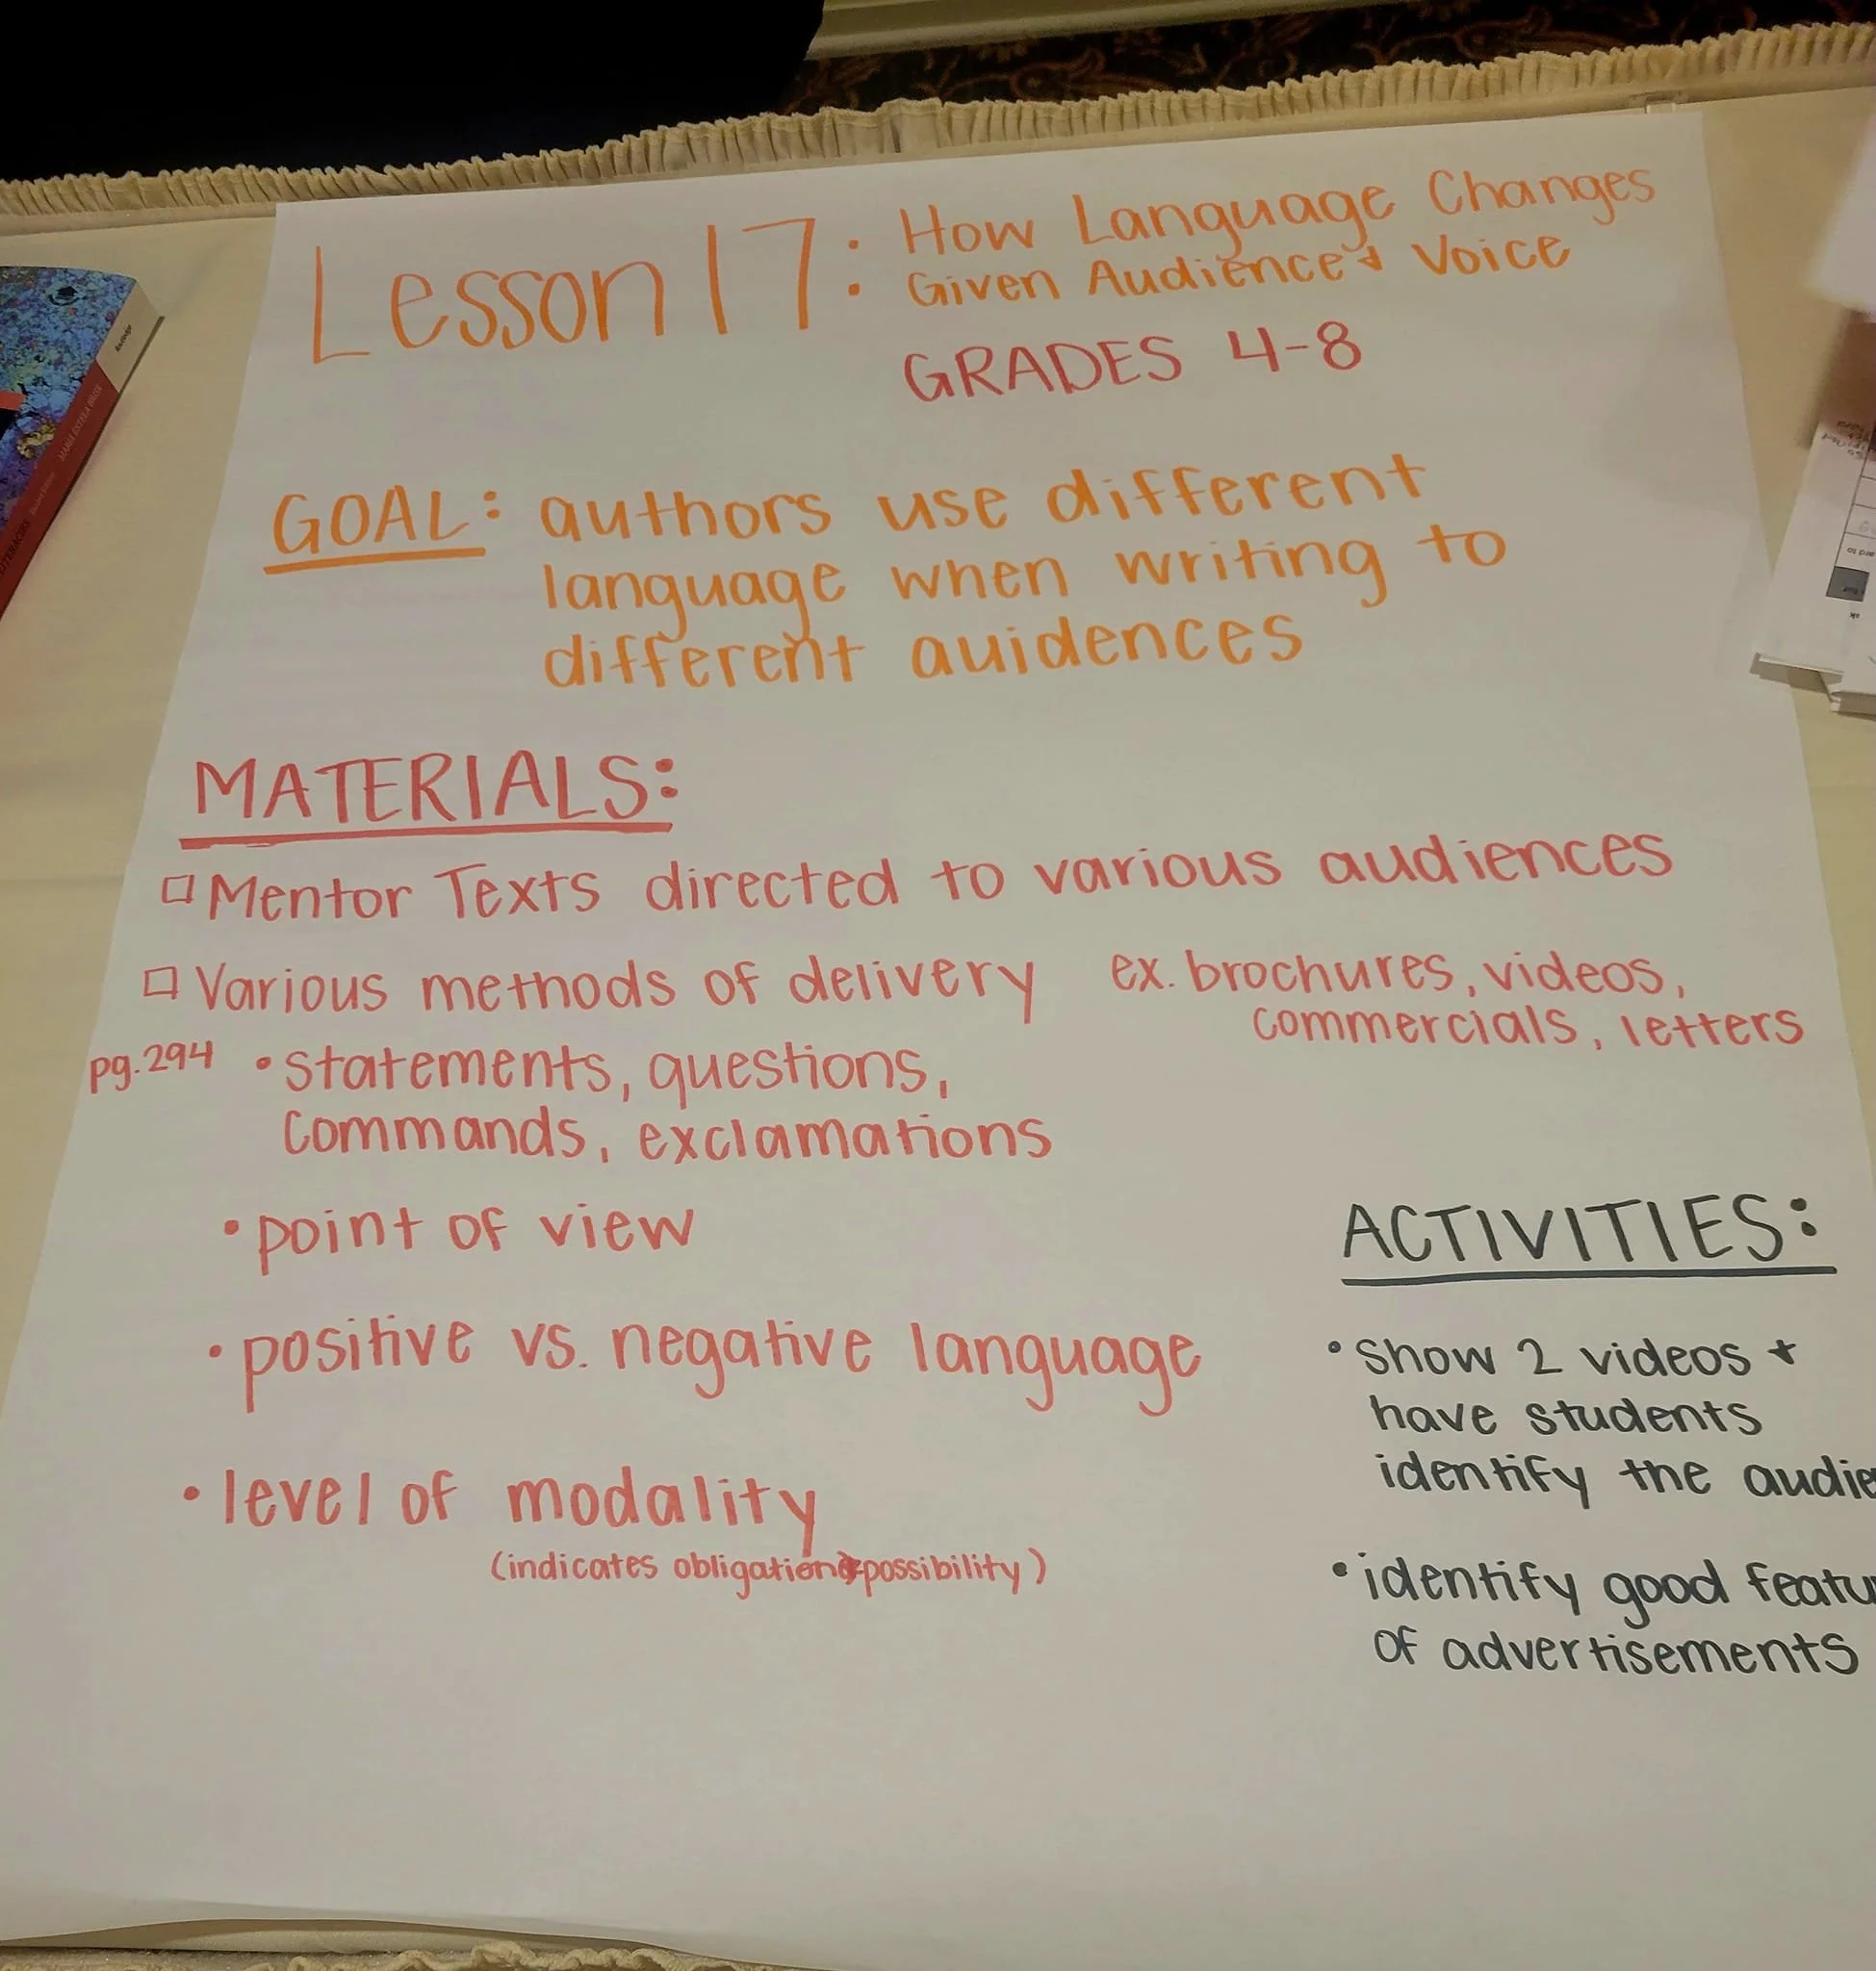 Lesson 17: How Language Changes
Given Audience & Voice
GRADES 4-8
GOAL: authors use different
language when writing to
different auidences
MATERIALS:
Mentor Texts directed to various audiences
Various methods of delivery ex. brochures, videos,
commercials, letters
pg. 294 • statements, questions,
commands, exclamations
• point of view
• positive vs. negative language
• level of modality
(indicates obligation & possibility)
ACTIVITIES:
• show 2 videos +
have students
identify the audie
• identify good featu
of advertisements
MARIA ESTELA BRISK